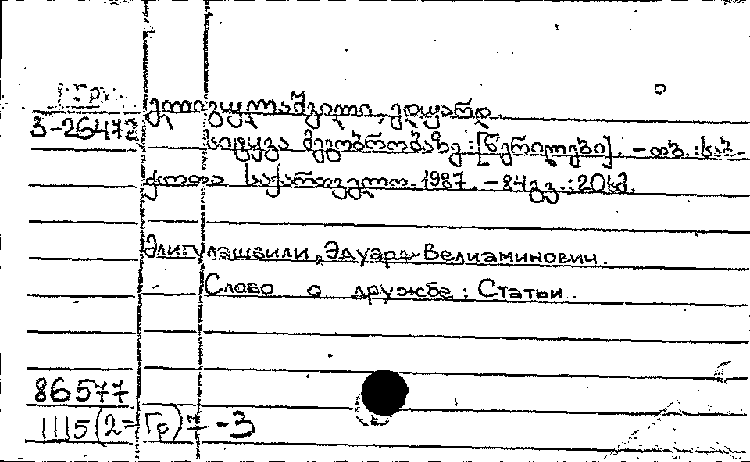 Гр.
ელიგულაშვილი, ედუარდ.
3-26472
სიტყვა მეგობრობაზე : [წერილები]. - თბ. : საბ-
ჭოთა საქართველო. 1987. - 84 გვ. : 20 სმ.
Элигулашвили, Эдуард Велиаминович.
Слово о дружбе : Статьи.
86577
1115(2=Гр)7 -3